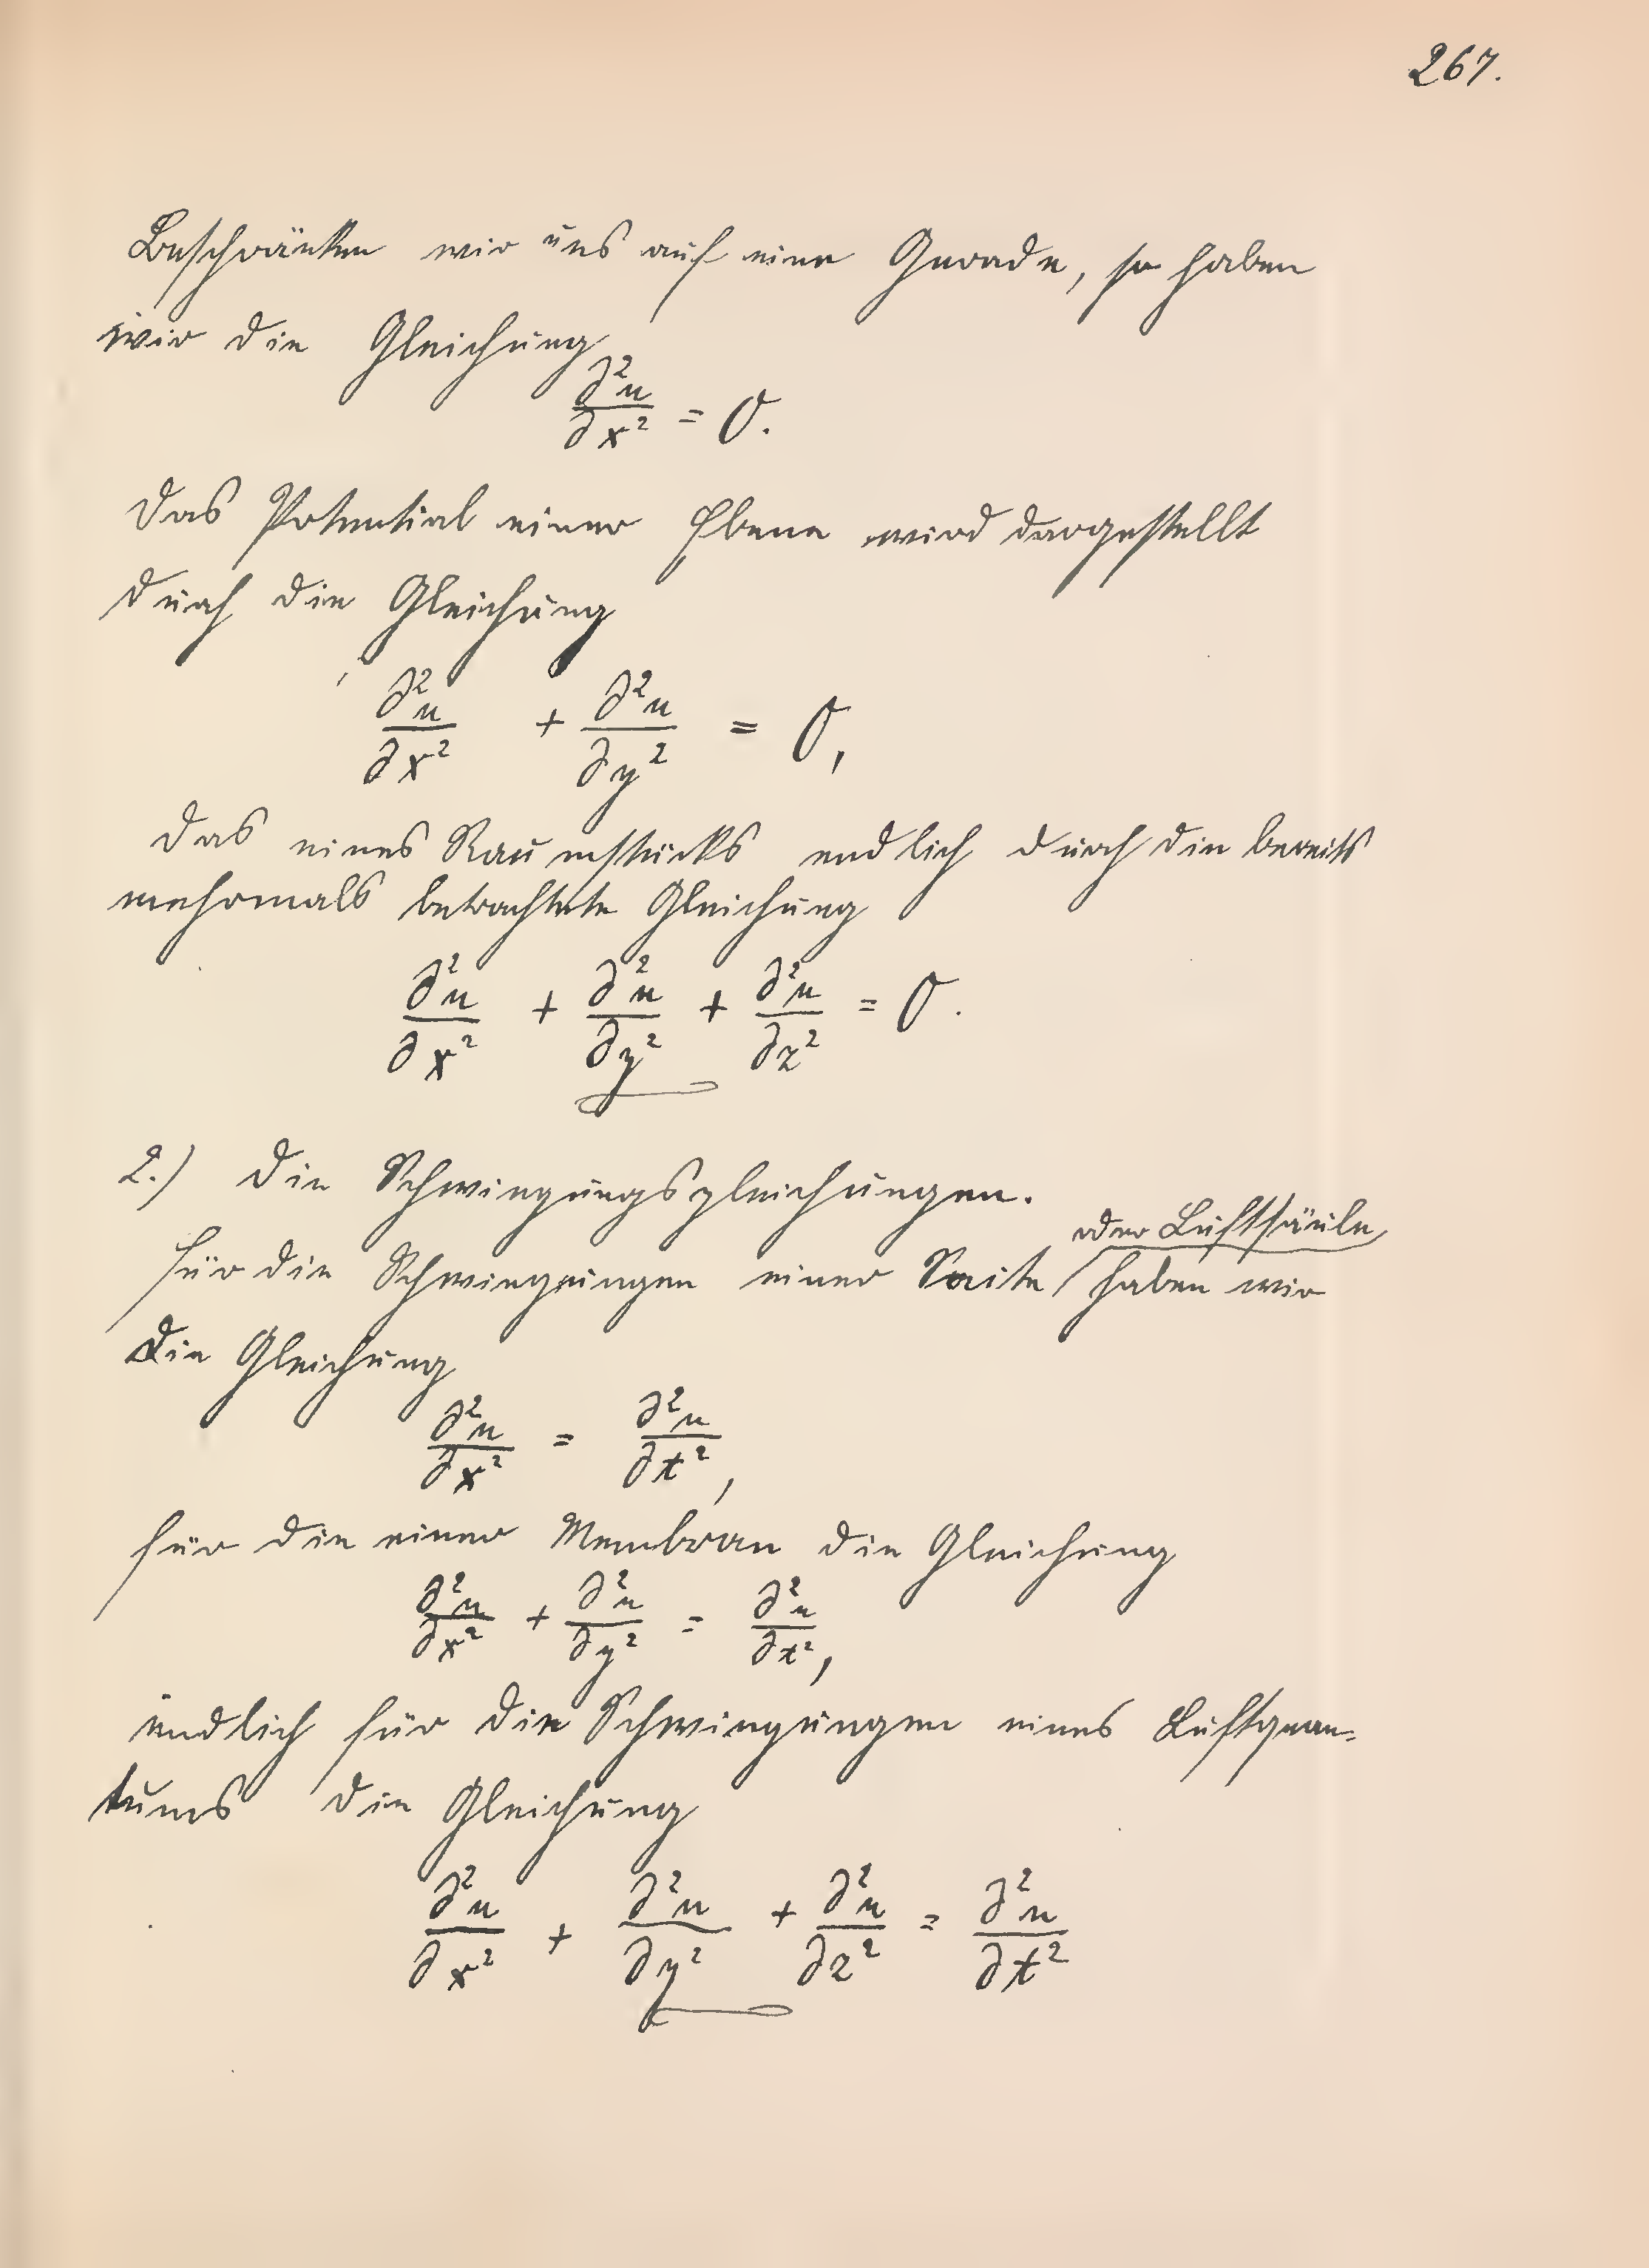 267.
Beschränken wir uns auf eine Gerade, so haben
wir die Gleichung
∂²u/∂x² = 0.
Das Potential einer Ebene wird dargestellt
durch die Gleichung
∂²u/∂x² + ∂²u/∂y² = 0,
das eines Raumstücks endlich durch die bereits
mehrmals betrachtete Gleichung
∂²u/∂x² + ∂²u/∂y² + ∂²u/∂z² = 0.
2.) Die Schwingungsgleichungen.
oder Luftsäule
Für die Schwingungen einer Saite / haben wir
die Gleichung
∂²u/∂x² = ∂²u/∂t²,
für die einer Membran die Gleichung
∂²u/∂x² + ∂²u/∂y² = ∂²u/∂t²,
endlich für die Schwingungen eines Luftquan-
tums die Gleichung
∂²u/∂x² + ∂²u/∂y² + ∂²u/∂z² = ∂²u/∂t²